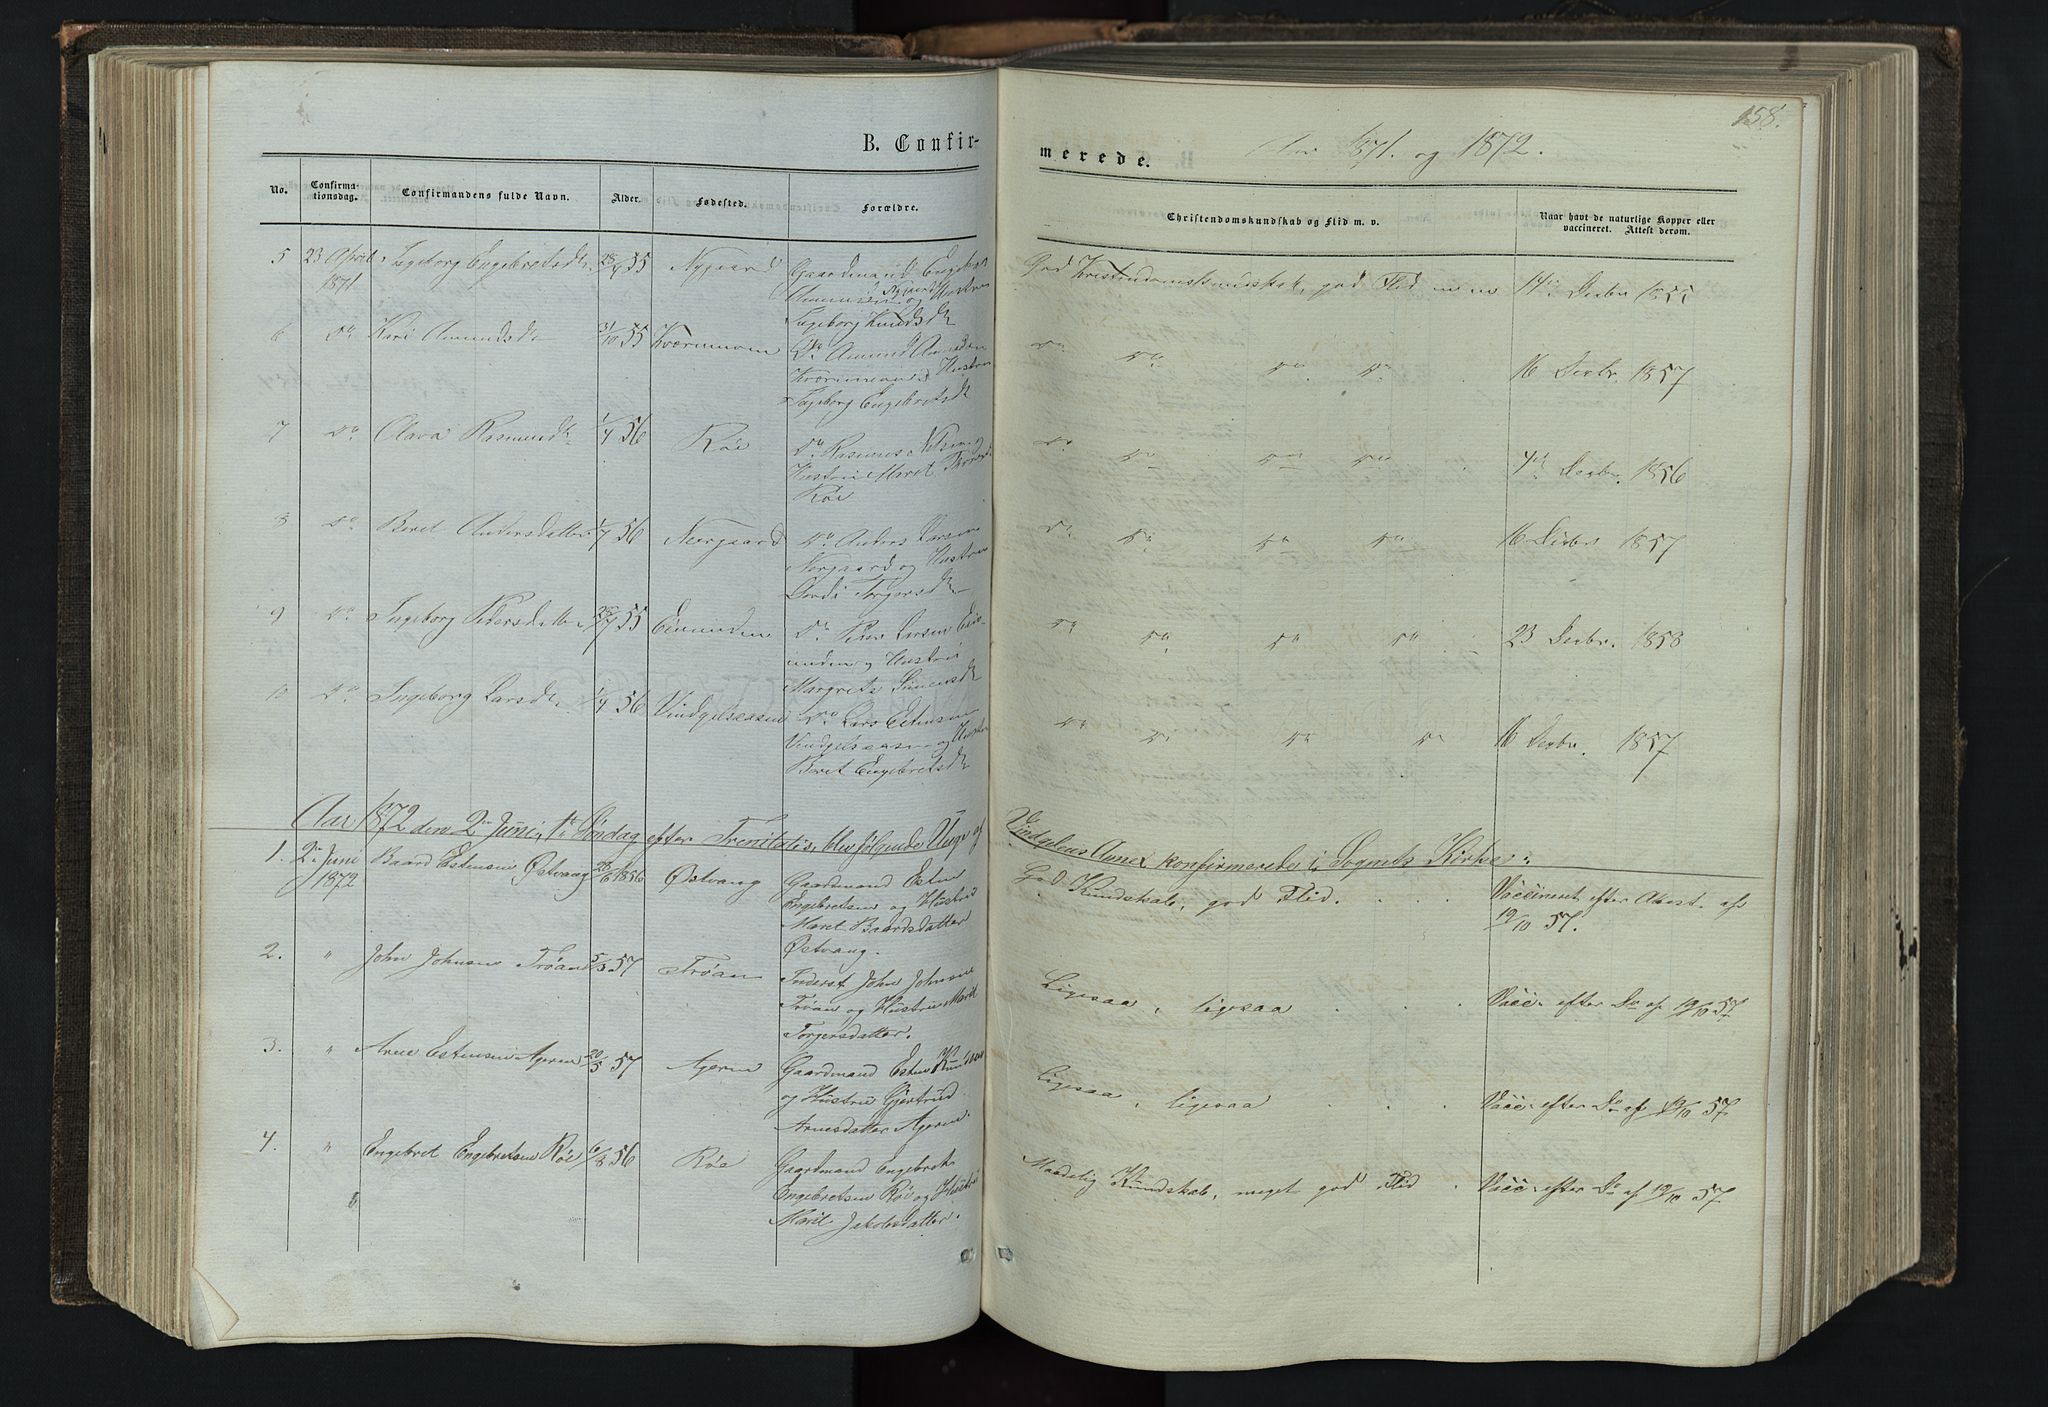 158.
B. Confir-
merede.
Aar 1871. og 1872.
No.
Confirma-
tionsdag.
Confirmandens fulde Navn.
Alder.
Fødested.
Forældre.
Christendomskundskab og Flid m. v.
Naar havt de naturlige Kopper eller
vaccineret. Attest derom.
5 23 April Ingeborg Engebretsdt. 23/4 55 Nygaard Gaardmand Engebr.
1871
Amundsen Nygaard og Hustru
Ingeborg Knudsdt
God Kristendomskundskab, god Flid 14de Decbr 1855
6 Do Kari Amundsdt 31/10 55 Kværnmoen Do Amund Amundsen
Kværnmoen, Hustru
Ingeborg Engebretsdt
Do Do Do Do 16 Decbr. 1857
7 Do Rasmusdt 1/4 56 Røe Do Rasmus Nilsen og
Hustru Maret
Røe
Do Do Do Do 4de Decbr. 1856
8 Do Beret Andersdatter 1/7 56 Neergaard Do Anders Larsen
Nergaard og Hustru
Dordi Torgersdt
Do Do Do Do 16 Decbr 1857
9 Do Ingeborg Pedersdatter 28/7 55 Eimunden Do Peder Larsen Eis-
unden og Hustru
Margrete Simensdt
Do Do Do Do 23 Decbr. 1858
10 Do Ingeborg Larsdt. 1/4 56 Vindgelsaasen Do Lars Estensen
Vindgelsaasen og Hustru
Beret Engebretsdt
Do Do Do Do 16 Decbr. 1857
Aar 1872 den 2den Juni, 1ste Søndag efter Trinitatis, blev følgende Unge af
Vindgelens Annex konfirmerede i Sognets Kirke:
1. 2den Juni Baard Estensen Østvang 28/6 1856 Østvang Gaardmand Esten
1872
Engebretsen og Hustru
Maret Baardsdatter
Østvang.
God Kundskab, god Flid. Vaccineret efter Attest af
19/10 57.
2. " John Johnsen Trøan 5/3 57 Trøan Inderst John Johnsen
Trøan og Hustru Marit
Torgersdatter.
Ligesaa, ligesaa Vacc. efter Do af 19/10 57
3. " Arne Estensen Ageren 20/5 57 Ageren Gaardmand Esten Knudsen
og Hustru Gjertrud
Arnesdatter Ageren.
Ligesaa, ligesaa Vacc. efter Do af 19/10 57
4. " Engebret Engebretsen Røe 6/8 56 Røe Gaardmand Engebret
Engebretsen Røe og Hustru
Marit Jakobsdatter.
Maadelig Kundskab, meget god Flid Vacc. efter Do af 19/10 57